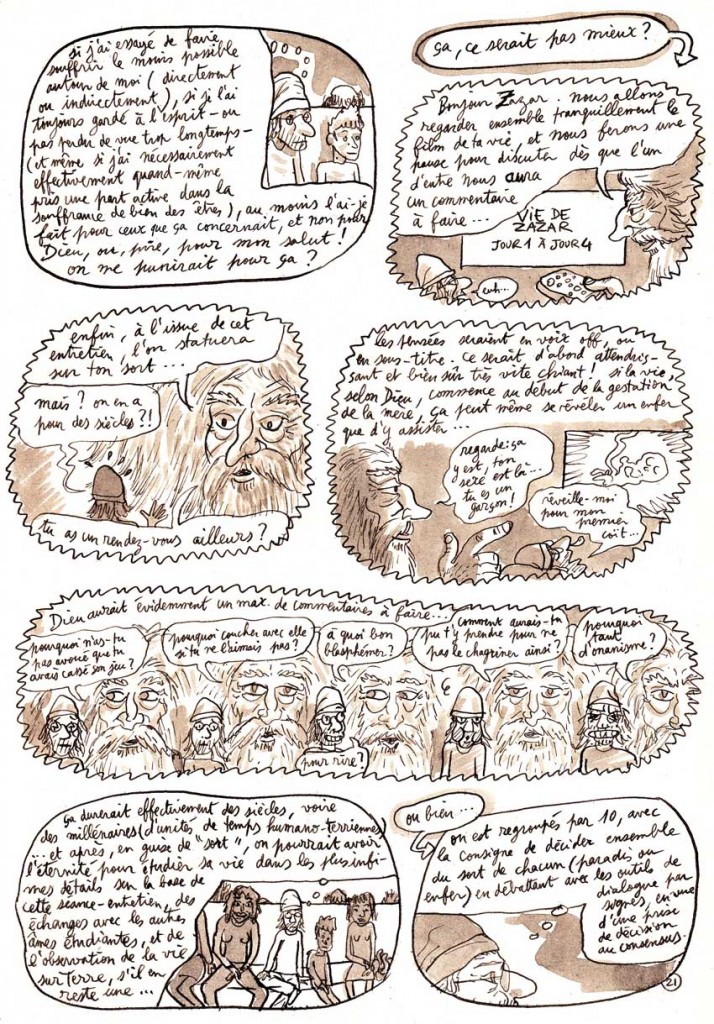 si j'ai essayé de faire
souffrir le moins possible
autour de moi (directement
ou indirectement), si je l'ai
toujours gardé à l'esprit - ou
pas perdu de vue trop longtemps -
(et même si j'ai nécessairement
effectivement quand-même
pris une part active dans la
souffrance de bien des êtres), au moins l'ai-je
fait pour ceux que ça concernait, et non pour
Dieu, ou, pire, pour mon salut!
on me punirait pour ça?
ça, ce serait pas mieux?
Bonjour Zazar. nous allons
regarder ensemble tranquillement le
film de ta vie, et nous ferons une
pause pour discuter dès que l'un
d'entre nous aura
un commentaire
à faire...
VIE DE
ZAZAR
JOUR 1 À JOUR 4
euh...
enfin, à l'issue de cet
entretien, l'on statuera
sur ton sort...
mais? on en a
pour des siècles?!
tu as un rendez-vous ailleurs?
les pensées seraient en voix off, ou
en sous-titre. ce serait d'abord attendris-
sant et bien sûr très vite chiant! si la vie,
selon Dieu, commence au début de la gestation
de la mère, ça peut même se révéler un enfer
que d'y assister...
regarde: ça
y est, ton
sexe est là...
tu es un
garçon!
réveille-moi
pour mon
premier
coït...
Dieu aurait évidemment un max. de commentaires à faire...
pourquoi n'as-tu
pas avoué que tu
avais cassé son jeu?
pourquoi coucher avec elle
si tu ne l'aimais pas?
à quoi bon
blasphémer?
pour rire?
comment aurais-tu
pu t'y prendre pour ne
pas le chagriner ainsi?
pourquoi
tant
d'onanisme?
ça durerait effectivement des siècles, voire
des millénaires (d'unités de temps humano-terriennes)
... et après, en guise de "sort", on pourrait avoir
l'éternité pour étudier sa vie dans les plus infi-
mes détails sur la base de
cette séance-entretien, des
échanges avec les autres
âmes étudiantes, et de
l'observation de la vie
sur Terre, s'il en
reste une...
ou bien...
on est regroupés par 10, avec
la consigne de décider ensemble
du sort de chacun (paradis ou
enfer) en débattant avec les outils de
dialogue par
signes, en vue
d'une prise
de décision
au consensus.
21